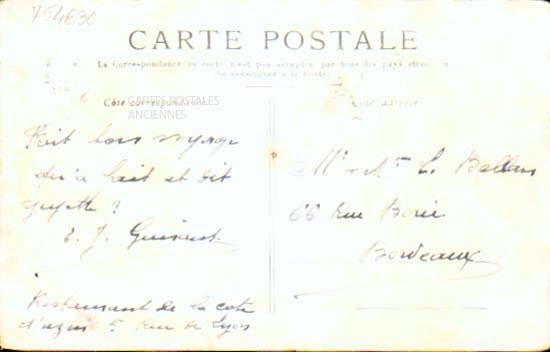 754630
CARTE POSTALE
La Correspondance au recto n'est pas acceptée par tous les pays étrangers
Se renseigner à la Poste
Côté correspondance
Côté adresse
CARTES POSTALES
ANCIENNES
Fait bon voyage
qu'a fait et dit
?
E. J.
Restaurant de la cote
d'azur 5 Rue de Lyon
Mr et Mme L.
66 Rue Borie
Bordeaux